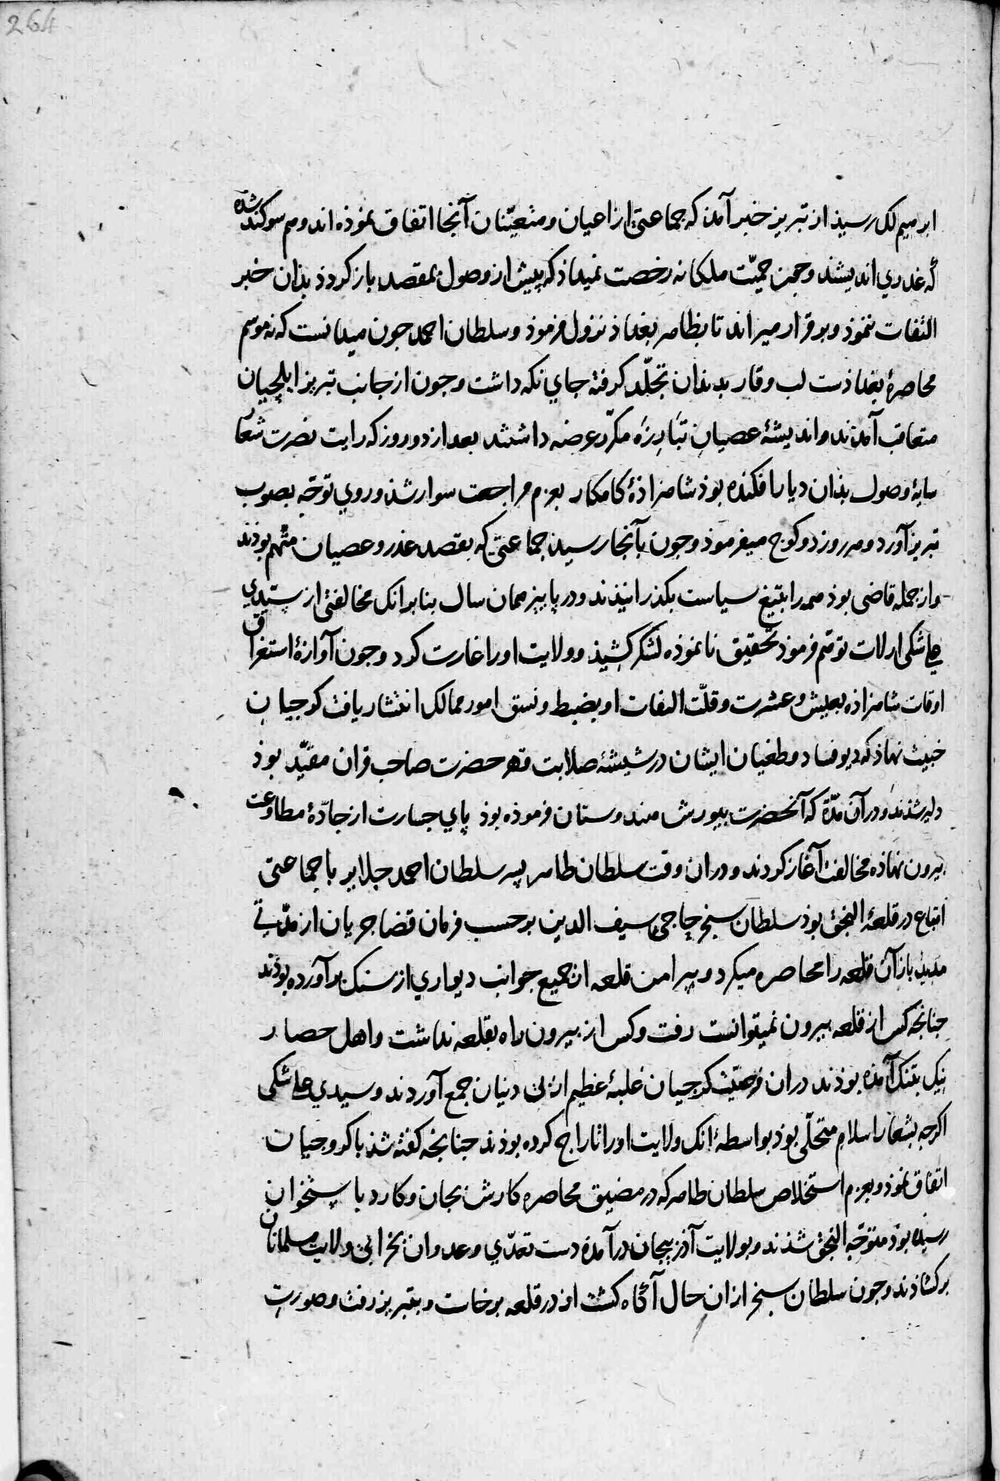 264
ابرهیم لک رسید از تبریز خبر آمد که جماعتی از اعیان و متعیّنان آنجا اتفاق نموذه اند و هم سوکند شده
که غدری اندیشند و جون حمیّت ملکانه رخصت نمیداذ که پیش از وصول بمقصد باز کردد بذان خبر
التفات ننموذ و برقرار میراند تا بظاهر بغداذ نزول فرموذ و سلطان احمد جون میدانست که نه موسم
محاصرهٔ بغداذست لب وقار بدندان تجلّد کرفته جای نکه داشت و جون از جانب تبریز ایلچیان
متعاقب آمدند و اندیشهٔ عصیان تبارزه مکرّر عرضه داشتند بعد از دو روز که رایت نصرت شعار
سایهٔ وصول بذان دیار افکنده بوذ شاهزاذهٔ کامکار بعزم مراجعت سوار شد و روی توجّه بصوب
تبریز آورد و هر روز دو کوچ میفرموذ و جون بآنجا رسید جماعتی که بقصد غدر و عصیان متّهم بوذند
و از جمله قاضی بوذ همه را بتیغ سیاست بکذرانیذند و در پاییز همان سال بنابر انک مخالفتی از سیّدی
علی شکی ارلات توهّم فرموذ تحقیق نا نموذه لشکر کشیذ و ولایت او را غارت کرد و جون آوازهٔ استغراق
اوقات شاهزاذه بعیش و عشرت و قلّت التفات او بضبط و نسق امور ممالک انتشار یافت کرجیان
خبیث نهاذ که دیو فساد و طغیان ایشان در شیشهٔ صلابت قهر حضرت صاحب قران مقیّد بوذ
دلیر شذند و در آن مدّة که آنحضرت بیورش هندوستان فرموذه بوذ پای جسارت از جادّهٔ مطاوعت
بیرون نهاذه مخالفت آغاز کردند و در ان وقت سلطان طاهر پسر سلطان احمد جلایر با جماعتی
اتباع در قلعهٔ النجق بوذ سلطان سنجر حاجی سیف الدین بر حسب فرمان قضا جریان از مدّتی
مدید باز آن قلعه را محاصره میکرد و پیرامن قلعه از جمیع جوانب دیواری از سنک برآورده بوذند
جنانجه کس از قلعه بیرون نمیتوانست رفت و کس از بیرون راه بقلعه نداشت و اهل حصار
نیک بتنک آمذه بوذند در ان فرصت کرجیان غلبهٔ عظیم از بی دینان جمع آوردند و سیدی علی شکی
اکرچه بشعار اسلام متحلّی بوذ بواسطهٔ انک ولایت او را تاراج کرده بوذند جنانجه کفته شذ با کرجیان
اتفاق نموذ و بعزم استخلاص سلطان طاهر که در مضیق محاصره کارش بجان و کارد باستخوان
رسیذه بوذ متوجّه النجق شذند و بولایت آذربیجان درآمده دست تعدّی و عدوان بخرابی ولایت مسلمانان
برکشاذند و جون سلطان سنجر از ان حال آکاه کشت از در قلعه برخاست و بتبریز رفت و صورت